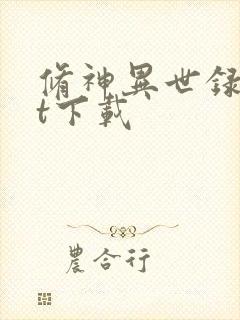 脩神異世録
t下載
農合行